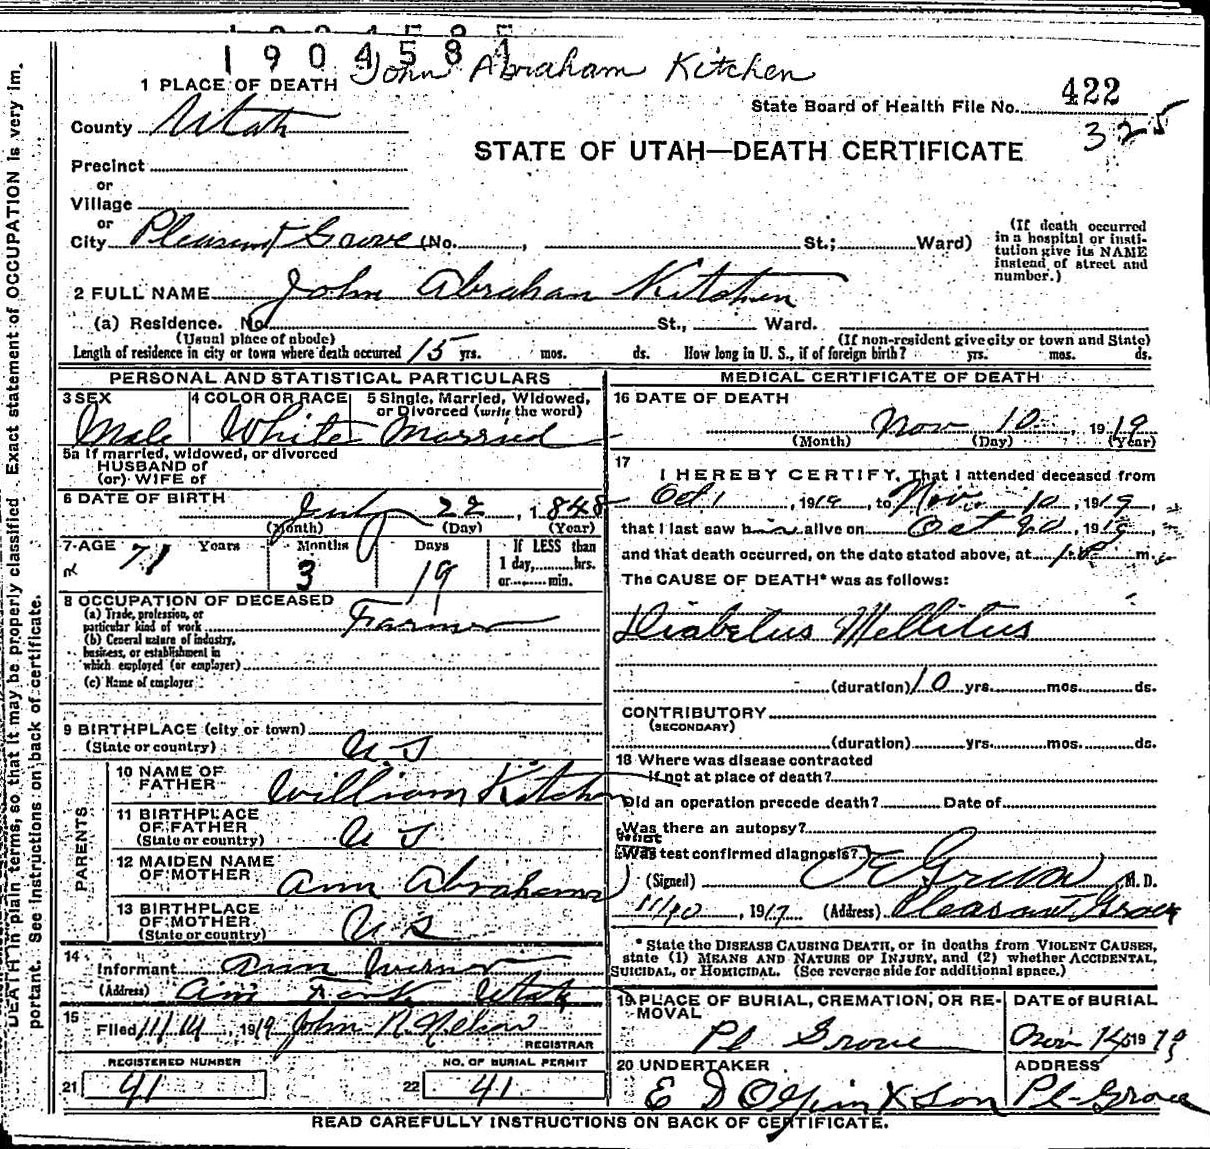 1904584
John Abraham Kitchen
1 PLACE OF DEATH
State Board of Health File No. 422
325
County Utah
STATE OF UTAH—DEATH CERTIFICATE
Precinct
or
Village
or
City Pleasant Grove (No. , St.; Ward)
(If death occurred in a hospital or insti-
tution give its NAME instead of street and number.)
2 FULL NAME John Abraham Kitchen
(a) Residence. No. St., Ward.
(Usual place of abode) (If non-resident give city or town and State)
Length of residence in city or town where death occurred 15 yrs. mos. ds. How long in U. S., if of foreign birth? yrs. mos. ds.
PERSONAL AND STATISTICAL PARTICULARS
3 SEX Male
4 COLOR OR RACE White
5 Single, Married, Widowed, or Divorced (write the word) Married
5a If married, widowed, or divorced
HUSBAND of
(or) WIFE of
6 DATE OF BIRTH July 22, 1848
(Month) (Day) (Year)
7 AGE 71 Years 3 Months 19 Days
If LESS than
1 day, hrs.
or min.
8 OCCUPATION OF DECEASED
(a) Trade, profession, or
particular kind of work Farmer
(b) General nature of industry,
business, or establishment in
which employed (or employer)
(c) Name of employer
9 BIRTHPLACE (city or town)
(State or country) U S
PARENTS
10 NAME OF FATHER William Kitchen
11 BIRTHPLACE OF FATHER
(State or country) U S
12 MAIDEN NAME OF MOTHER Ann Abrahams
13 BIRTHPLACE OF MOTHER
(State or country) U S
14
Informant
(Address) Am Fork Utah
15
Filed 11/14, 1919 John R. Nelson
REGISTRAR
REGISTERED NUMBER
21 41
NO. OF BURIAL PERMIT
22 41
MEDICAL CERTIFICATE OF DEATH
16 DATE OF DEATH
Nov 10, 1919
(Month) (Day) (Year)
17
I HEREBY CERTIFY, That I attended deceased from
Oct 1, 1919, to Nov. 10, 1919,
that I last saw him alive on Oct 20, 1919,
and that death occurred, on the date stated above, at m.
The CAUSE OF DEATH* was as follows:
Diabetus Mellitus
(duration) 10 yrs. mos. ds.
CONTRIBUTORY
(SECONDARY)
(duration) yrs. mos. ds.
18 Where was disease contracted
if not at place of death?
Did an operation precede death? Date of
Was there an autopsy?
What
Was test confirmed diagnosis?
(Signed) M.D.
, 1917 (Address) Pleasant Grove
* State the DISEASE CAUSING DEATH, or in deaths from VIOLENT CAUSES,
state (1) MEANS AND NATURE OF INJURY, and (2) whether ACCIDENTAL,
SUICIDAL, or HOMICIDAL. (See reverse side for additional space.)
19 PLACE OF BURIAL, CREMATION, OR RE-
MOVAL
Pl Grove
DATE of BURIAL
Nov 14, 1919
20 UNDERTAKER
E D Olpin & Son
ADDRESS
Pl-Grove
READ CAREFULLY INSTRUCTIONS ON BACK OF CERTIFICATE.
DEATH in plain terms, so that it may be properly classified. Exact statement of OCCUPATION is very im-
portant. See instructions on back of certificate.